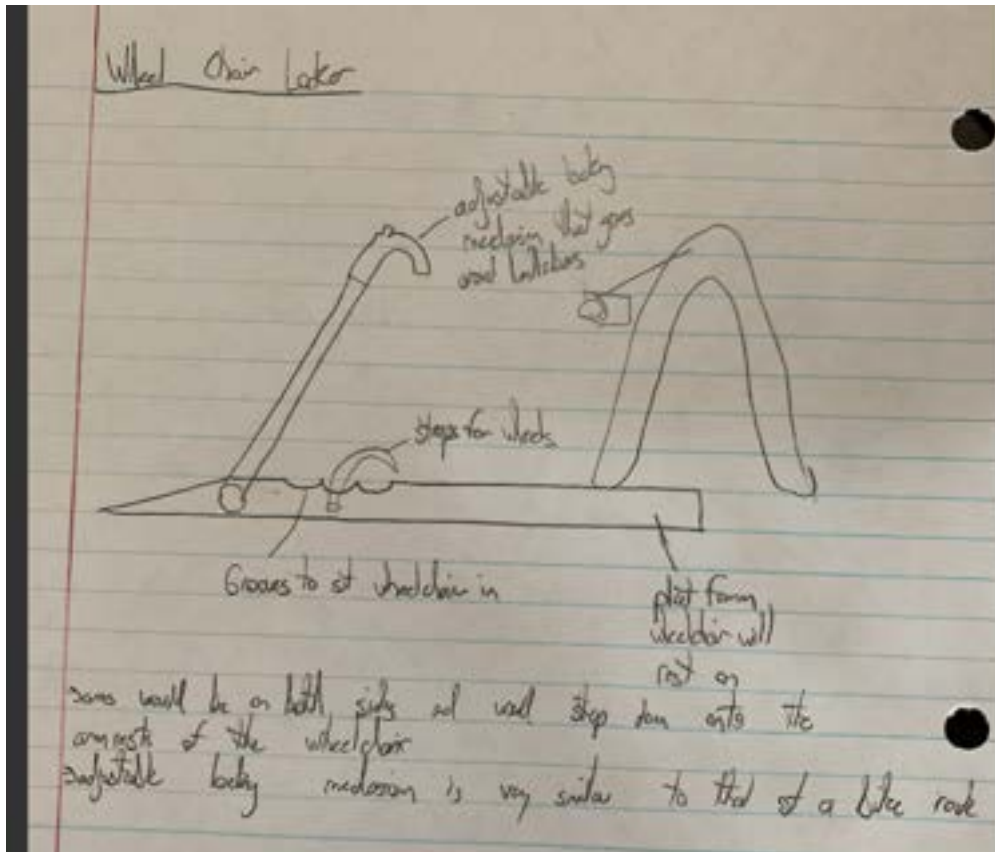 Wheel Chair Locker
adjustable locking
mechanism that goes
around
stops for wheels
Grooves to sit wheelchair in
platform
wheelchair will
rest on
would be on both sides and would strap down onto the
armrests of the wheelchair
adjustable locking mechanism is very similar to that of a bike rack